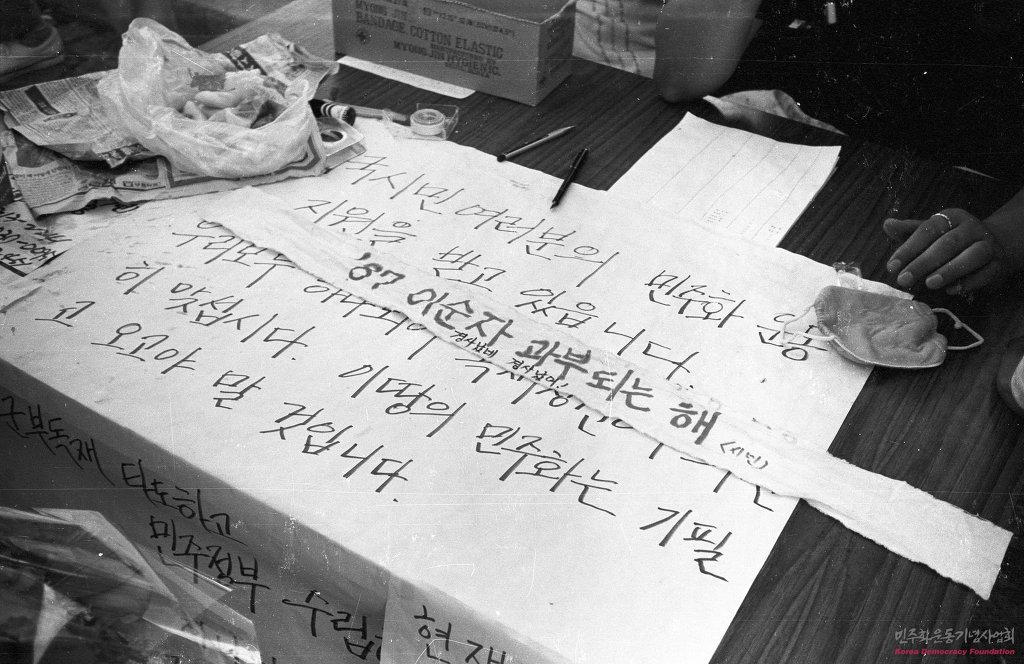 BANDAGE, COTTON ELASTIC
MYONG JIN HYGIENIC
시민 여러분의 민주화 운동
지원을 받고 있읍니다.
우리모두
히 맞섭시다. 이땅의 민주화는 기필
고 오고야 말 것입니다.
'87 이순자 과부되는 해
경사났네 경사났어
<시민>
군부독재 타도하고
민주정부 수립
현재
민주화운동기념사업회
Korea Democracy Foundation